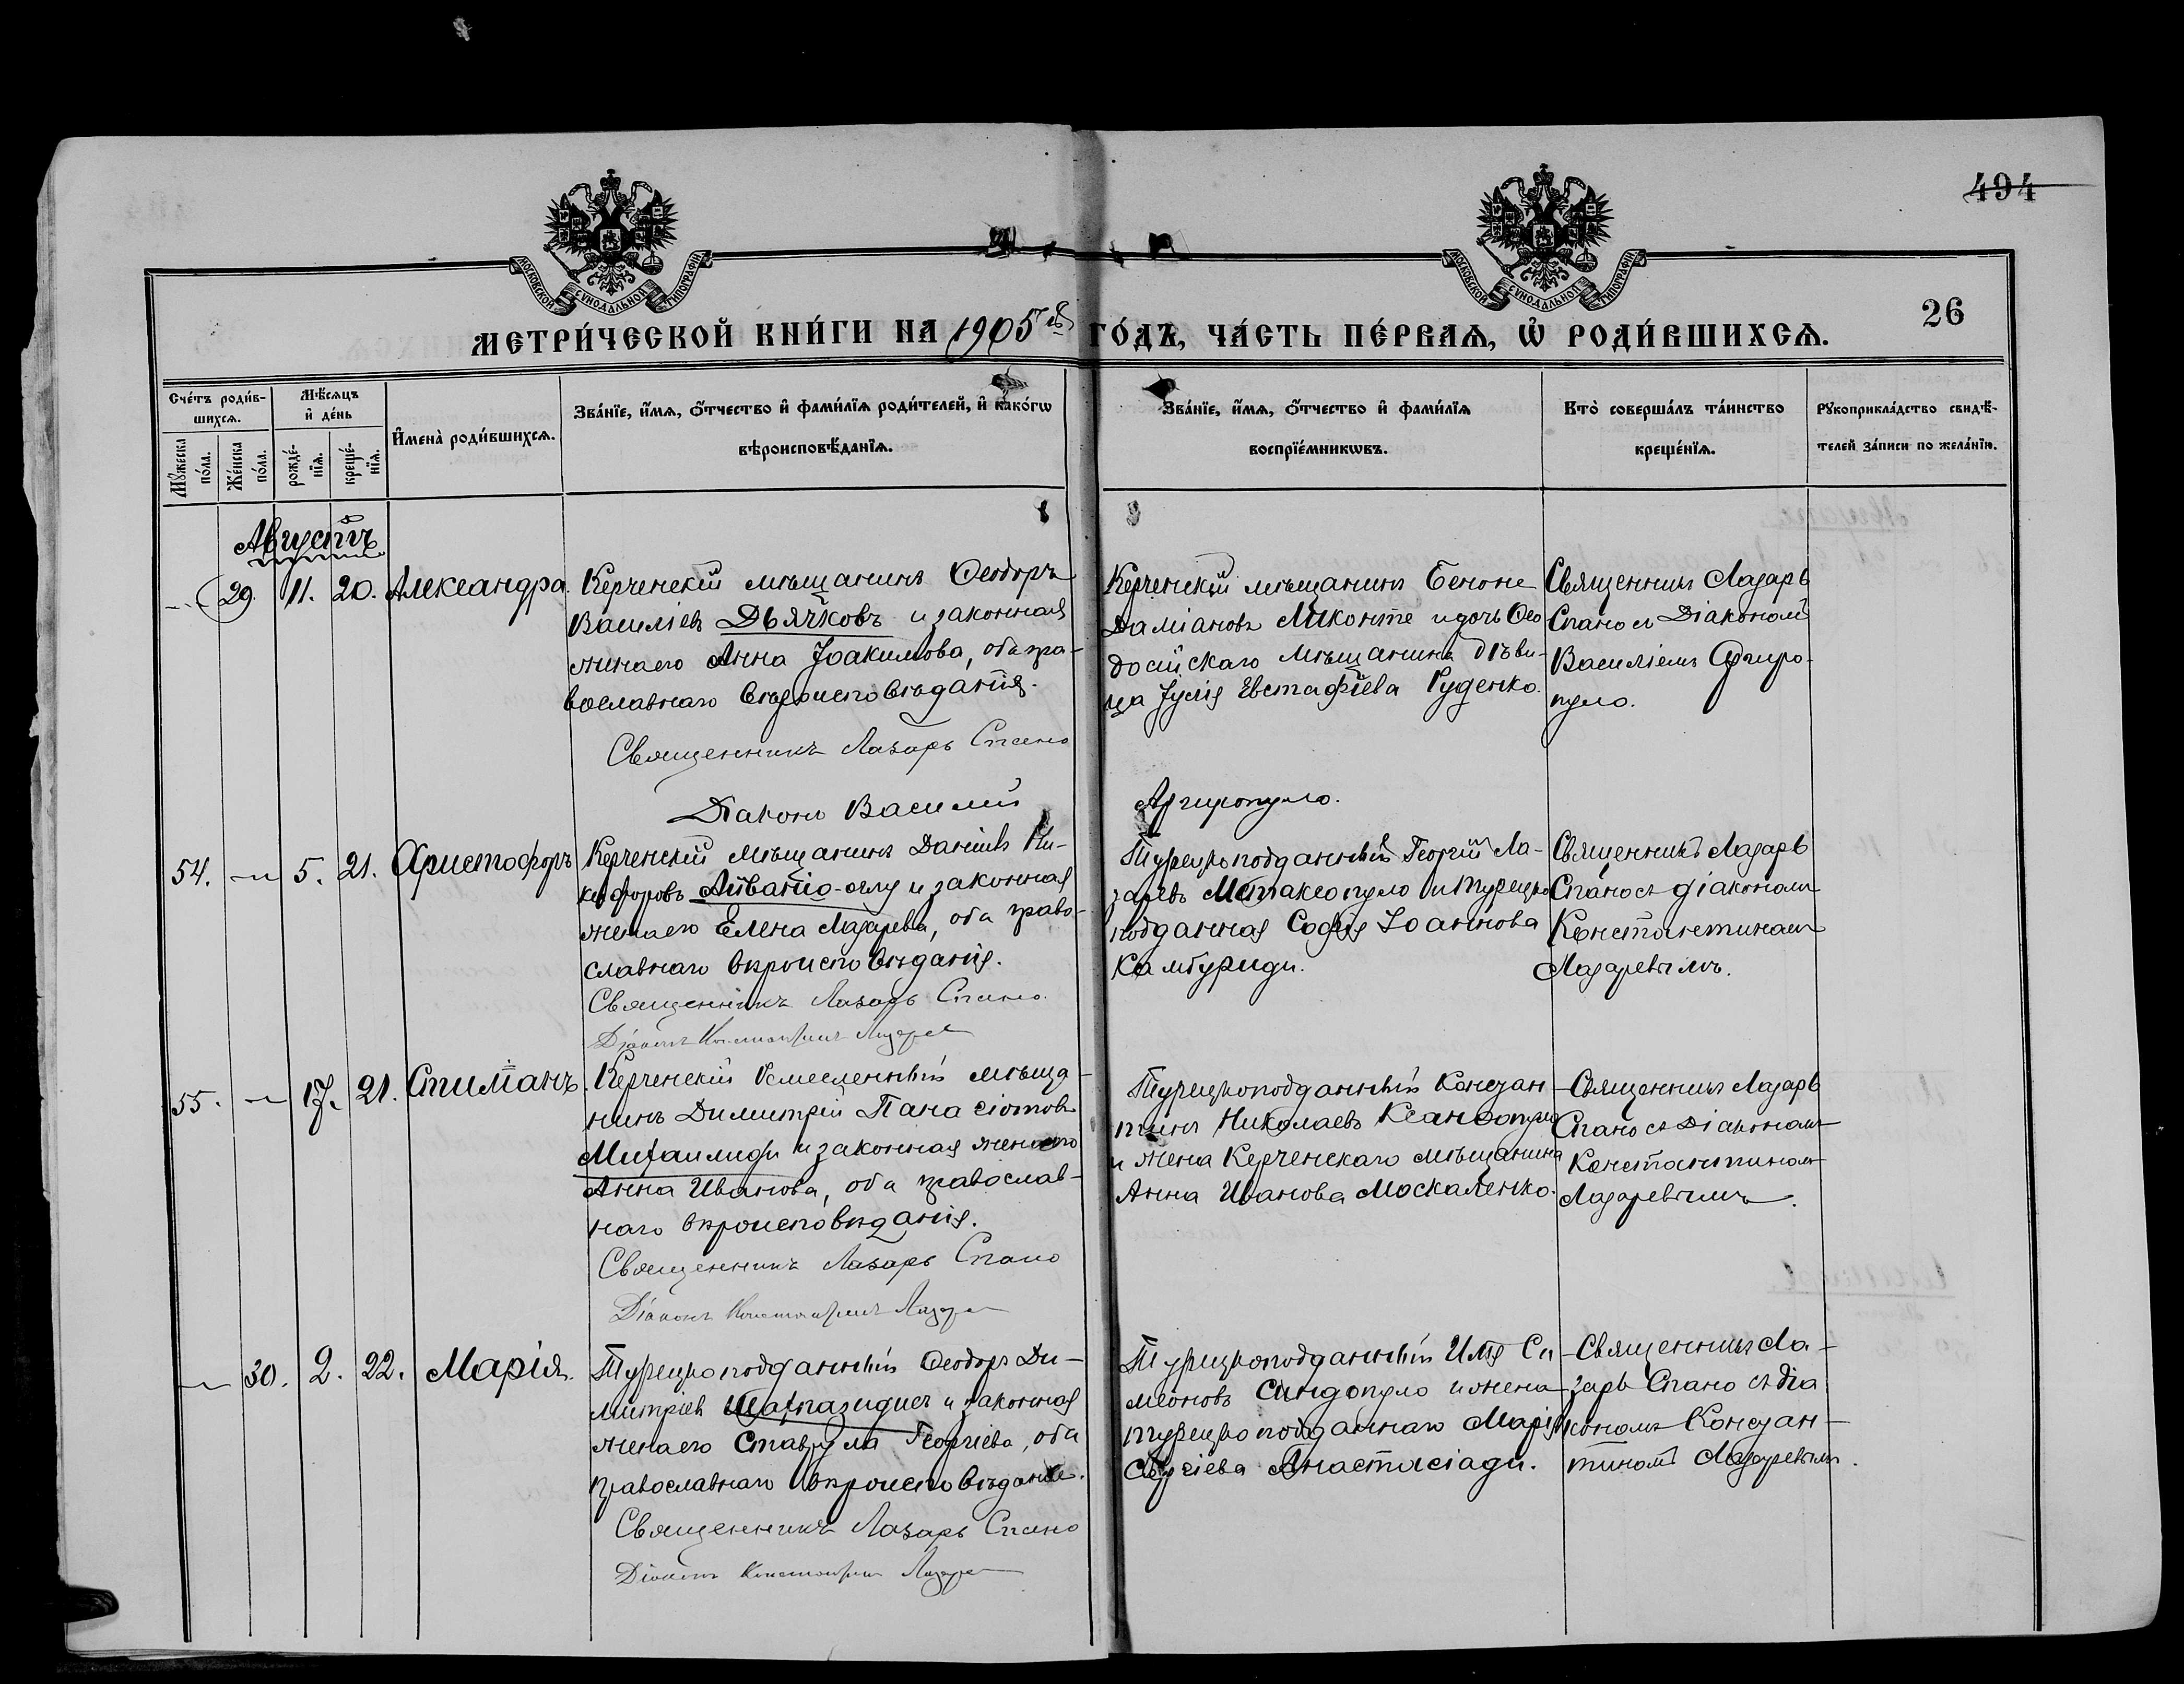 494
МОСКОВСКОЙ СѴНОДАЛЬНОЙ ТИПОГРАФІИ
МОСКОВСКОЙ СѴНОДАЛЬНОЙ ТИПОГРАФІИ
26
МЕТРИ́ЧЕСКОЙ КНИ́ГИ НА 1905 ГО́ДЪ, ЧА́СТЬ ПЕ́РВАѦ, Ѡ҆ РОДИ́ВШИХСѦ.
Сче́тъ роди́в-
шихсѧ.
Мꙋ́жеска по́ла.
Же́нска по́ла.
Мѣ́сѧцъ
и҆ де́нь
рожде́-
нїѧ.
креще́-
нїѧ.
И҆мена̀ роди́вшихсѧ.
Зва́нїе, и҆́мѧ, ѻ҆́тчество и҆ фами́лїѧ роди́телей, и҆ како́гѡ
вѣроисповѣ́данїѧ.
Зва́нїе, и҆́мѧ, ѻ҆́тчество и҆ фами́лїѧ
воспрїе́мникѡвъ.
Кто̀ соверша́лъ та́инство
креще́нїѧ.
Рꙋкоприкла́дство свидѣ́-
телей за́писи по жела́нїю.
Августъ
29. 11. 20. Александра.
Керченскій мѣщанинъ Ѳеодоръ
Василіевъ Дьячковъ и законная
жена его Анна Іоакимова, оба пра-
вославнаго вѣроисповѣданія.
Священникъ Лазарь Спано
Діаконъ Василій
Керченскій мѣщанинъ
Даміановъ и дочь Ѳео
досійскаго мѣщанина дѣви-
ца Іулія Евстафіева Руденко.
Аргиропуло.
Священникъ Лазарь
Спано съ Діакономъ
Василіемъ Аргиро-
пуло.
54. 5. 21. Христофоръ
Керченскій мѣщанинъ Даніилъ Ни-
кифоровъ и законная
жена его Елена Лазарева, оба право-
славнаго вѣроисповѣданія.
Священникъ Лазарь Спано.
Діаконъ Константинъ Лазарев
Турецкоподданный Георгій Ла-
заревъ Метаксопуло и турецко
подданная Софія Іоаннова
Камбуриди.
Священникъ Лазарь
Спано съ діакономъ
Константиномъ
Лазаревымъ.
55. 17. 21.
Керченскій Ремесленный мѣща-
нинъ Димитрій Панаіотовъ
Михаилиди и законная жена его
Анна Иванова, оба православ-
наго вѣроисповѣданія.
Священникъ Лазарь Спано
Діаконъ Константинъ Лазарев
Турецкоподданный Констан-
тинъ Николаевъ Ксандопуло
и жена Керченскаго мѣщанина
Анна Иванова Москаленко.
Священникъ Лазарь
Спано съ Діакономъ
Константиномъ
Лазаревымъ.
30. 2. 22. Марія.
Турецкоподданный Ѳеодоръ Ди-
митріевъ и законная
жена его Ставрула Георгіева, оба
православнаго вѣроисповѣданія.
Священникъ Лазарь Спано
Діаконъ Константинъ Лазарев
Турецкоподданный Илія Си-
меоновъ Синдопуло и жена
турецкоподданнаго Марія
Анастасіади.
Священникъ Ла-
зарь Спано съ діа
кономъ Констан-
тиномъ Лазаревымъ.